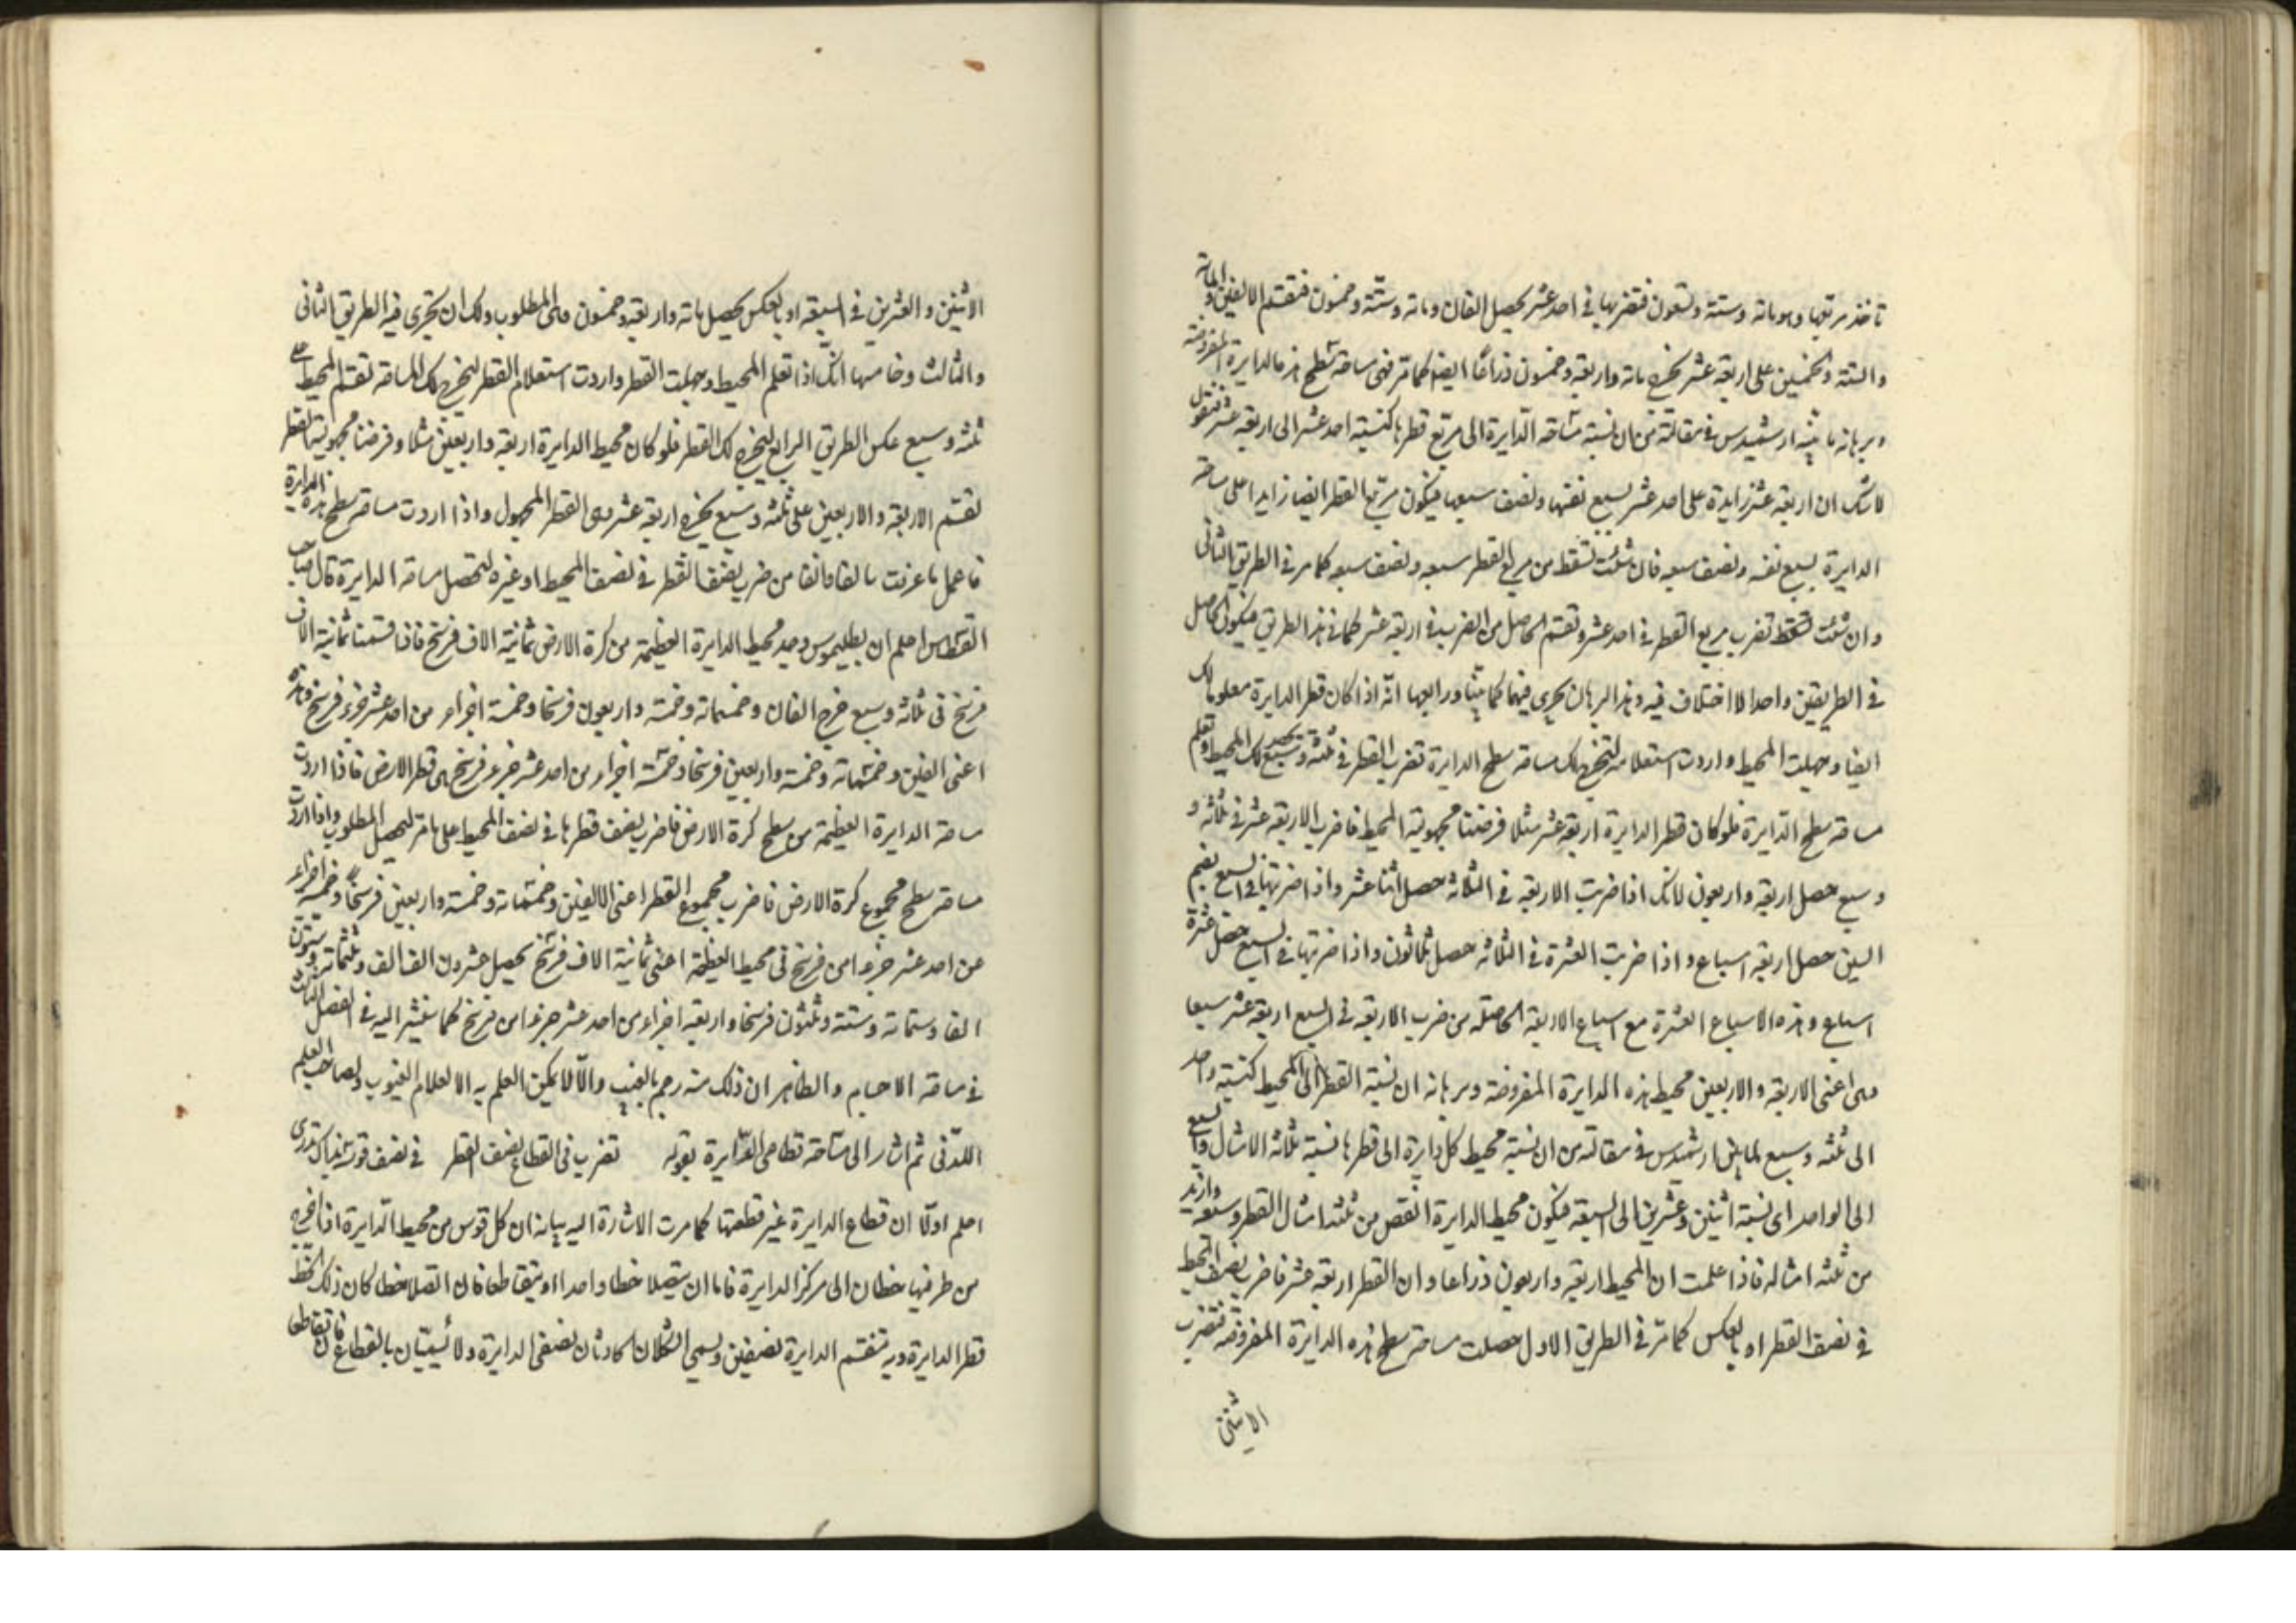 تاخذ مربعها وهو مائة وستة وتسعون فتضربها في احد عشر يحصل الفان ومائة وستة وخمسون فتقسم الالفين والمائة
والستة والخمسين على اربعة عشر يخرج مائة واربعة وخمسون ذراعًا ايضا كما مر فهي مساحة سطح هذه الدايرة المفروضة
وبرهانه ما بينه ارشميدس في مقالته من ان نسبة مساحة الدايرة الى مربع قطرها كنسبة احد عشر الى اربعة عشر فنقول
لا شك ان اربعة عشر زايدة على احد عشر بسبع نفسها ونصف سبعها فيكون مربع القطر ايضا زايدا على مساحة
الدايرة بسبع نفسه ونصف سبعه فان شئت تسقط من مربع القطر سبعه ونصف سبعه كما مر في الطريق الثاني
وان شئت فقط تضرب مربع القطر في احد عشر وتقسم الحاصل من الضرب على اربعة عشر كما في هذا الطريق فيكون الحاصل
في الطريقين واحدا لا اختلاف فيه وهذا البرهان يجري فيهما كما بينا ورابعها انه اذا كان قطر الدايرة معلوما لك
ايضا وجهلت المحيط واردت استعلامه لتخرج لك مساحة سطح الدايرة تضرب القطر في ثلثة وسبع يحصل لك المحيط وتعلم
مساحة سطح الدايرة فلو كان قطر الدايرة اربعة عشر مثلا فرضنا مجهولية المحيط فاضرب الاربعة عشر في ثلاثة و
وسبع حصل اربعة واربعون لانك اذا ضربت الاربعة في الثلاثة حصل اثنا عشر واذا ضربتها في السبع بضم
السين حصل اربعة اسباع واذا ضربت العشرة في الثلاثة حصل ثلاثون واذا ضربتها في السبع حصل عشرة
اسباع وهذه الاسباع العشرة مع اسباع الاربعة الحاصلة من ضرب الاربعة في السبع اربعة عشر سبعا
وهى اعنى الاربعة والاربعين محيط هذه الدايرة المفروضة وبرهانه ان نسبة القطر الى المحيط كنسبة واحد
الى ثلثة وسبع لما بين ارشميدس في مقالته من ان نسبة محيط كل دايرة الى قطرها نسبة ثلاثة الامثال والسبع
الى الواحد اى نسبة اثنين وعشرين الى السبعة فيكون محيط الدايرة انقص من ثلثة امثال القطر وسبعه وازيد
من ثلثة امثاله فاذا علمت ان المحيط اربعة واربعون ذراعا وان القطر اربعة عشر فاضرب نصف المحيط
في نصف القطر او بالعكس كما مر في الطريق الاول حصلت مساحة سطح هذه الدايرة المفروضة فتضرب
الاثنين
الاثنين والعشرين في السبعة او بالعكس يحصل مائة واربعة وخمسون وهى المطلوب ولك ان تجرى فيه الطريق الثانى
والثالث وخامسها انك اذا تعلم المحيط وجهلت القطر واردت استعلام القطر ليخرج لك المساحة تقسم المحيط على
ثلثة وسبع عكس الطريق الرابع ليخرج لك القطر فلو كان محيط الدايرة اربعة واربعين مثلا وفرضنا مجهولية القطر
تقسم الاربعة والاربعين على ثلثة وسبع يخرج اربعة عشر وهى القطر المجهول واذا اردت مساحة سطح هذه الدايرة
فاعمل ما عرفت سالفا وآنفا من ضرب نصف القطر في نصف المحيط او غيره لتحصل مساحة الدايرة قال صاحب
القسطاس اعلم ان بطليموس وجد محيط الدايرة العظيمة من كرة الارض ثمانية الاف فرسخ فاذا قسمنا ثمانية الاف
فرسخ في ثلاثة وسبع خرج الفان وخمسمائة وخمسة واربعون فرسخا وخمسة اجزاء من احد عشر جزء فرسخ وهذه
اعنى الفين وخمسمائة وخمسة واربعين فرسخا وخمسة اجزاء من احد عشر جزء فرسخ هى قطر الارض فاذا اردت
مساحة الدايرة العظيمة من سطح كرة الارض فاضرب نصف قطرها في نصف المحيط على ما مر ليحصل المطلوب واذا اردت
مساحة سطح مجموع كرة الارض فاضرب مجموع القطر اعنى الالفين وخمسمائة وخمسة واربعين فرسخًا وخمسة اجزاء
من احد عشر جزءا من فرسخ في محيط العظيمة اعنى ثمانية الاف فرسخ يحصل عشرون الف الف وثلثمائة وستون
الفا وستمائة وستة وثلثون فرسخا واربعة اجزاء من احد عشر جزءا من فرسخ كما سنشير اليه في الفصل الثالث
في مساحة الاجسام والظاهر ان ذلك منه رجم بالغيب والّا لا يمكن العلم به الا لعلام الغيوب ولصاحب العلم
اللدنى ثم اشار الى مساحة قطاعى الدايرة بقوله تضرب في القطاع نصف القطر في نصف قوس
اعلم اولًا ان قطاع الدايرة غير قطعتها كما مرت الاشارة اليه بيانه ان كل قوس من محيط الدايرة اذا اخرج
من طرفيها خطان الى مركز الدايرة فاما ان يتصلا خطا واحدا او يتقاطعا فان اتصلا خطا كان ذلك الخط
قطر الدايرة وبه تنقسم الدايرة نصفين ويسمى الشكلان الحادثان نصفى الدايرة ولا يسميان بالقطاع فان تقاطعا